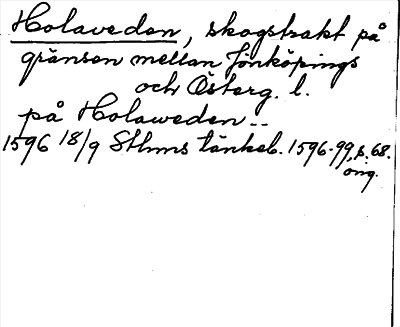 Holaveden, skogstrakt på
gränsen mellan Jönköpings
och Österg. l.
på Holaweden..
1596 18/9 Sthms tänkeb. 1596-99, s. 68.
orig.